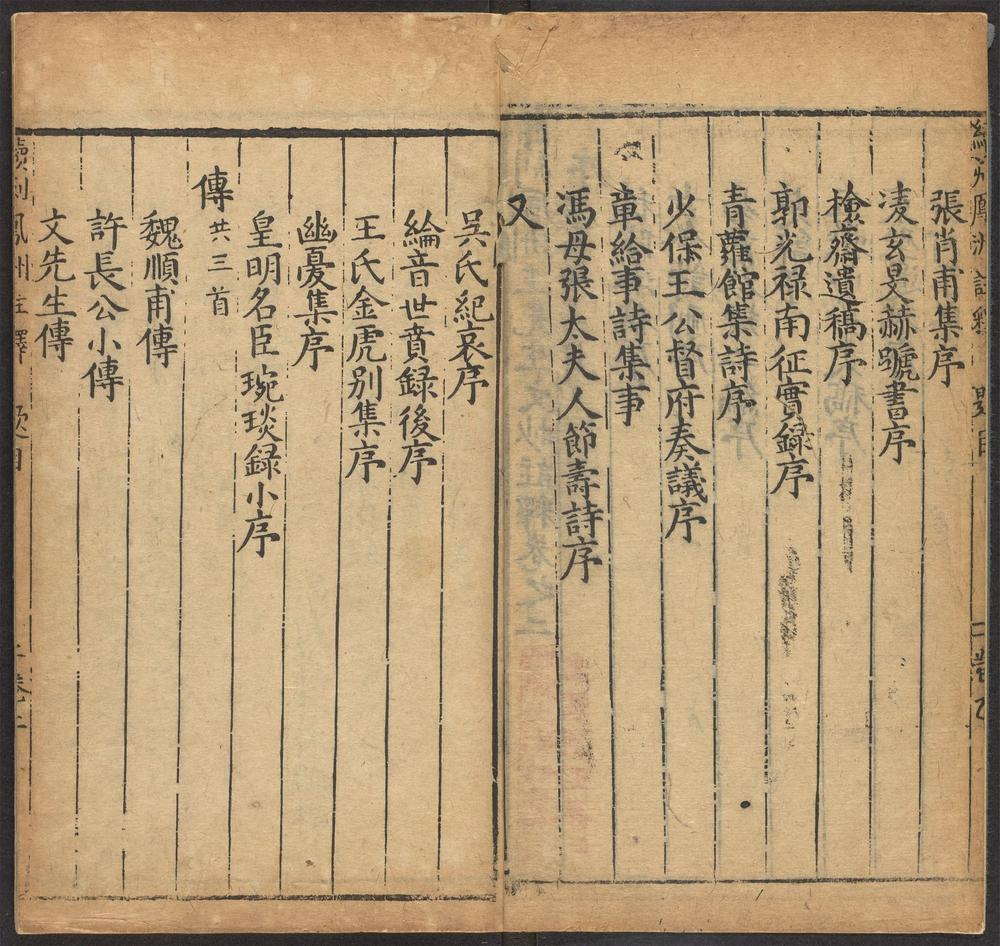 張肖甫集序
凌玄旻赫蹏書序
檢齋遺稿序
郭光禄南征實録序
青蘿館集詩序
少保王公督府奏議序
章給事詩集事
馮母張太夫人節壽詩序
又
吳氏紀哀序
綸音世賁録後序
王氏金虎别集序
幽憂集序
皇明名臣琬琰録小序
傳共三首
魏順甫傳
許長公小傳
文先生傳